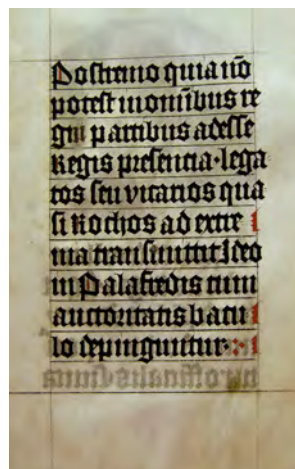 Postremo quia nō
potest in om̄ibus re
gni partibus adesse
Regis presentia·lega
tos seu vicarios qua
si Rochos ad extre
ma transmittit Ideo
in Palafredis cum
auctoritatis bacu
lo depinguntur·:·